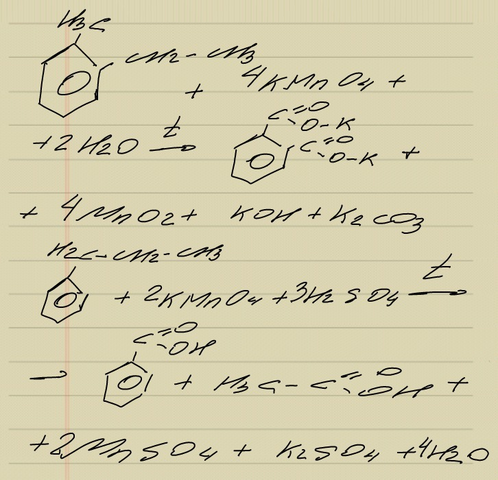 H3C
CH2 - CH3
+ 4KMnO4 +
+2H2O t → C=O O-K C=O O-K +
+ 4MnO2 + KOH + K2CO3
H2C-CH2-CH3
+ 2KMnO4 +3H2SO4 t →
C=O OH
→ + H3C - C=O OH +
+2MnSO4 + K2SO4 +4H2O